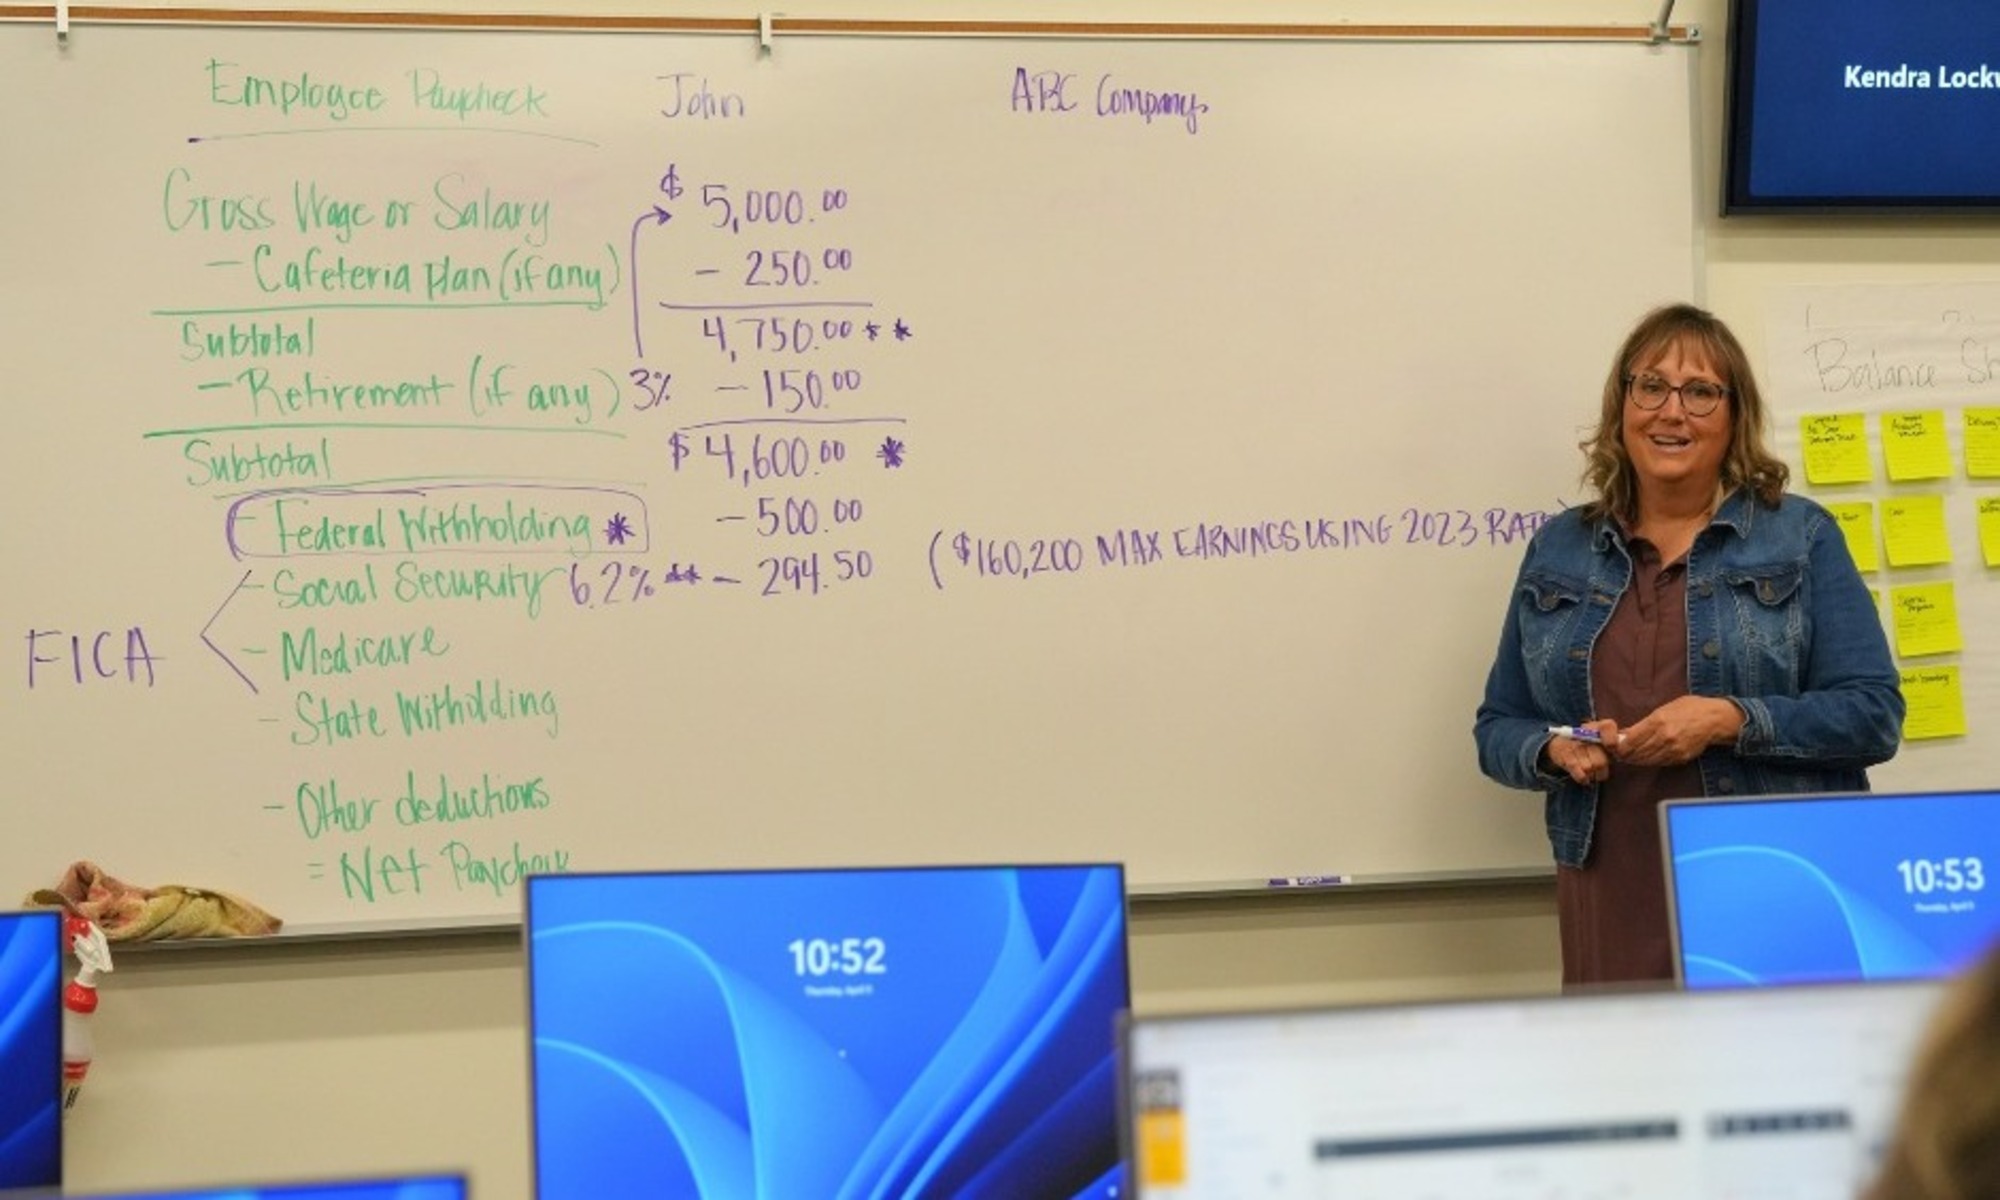 Employee Paycheck John ABC Company
Gross Wage or Salary $ 5,000.00
- Cafeteria Plan (if any) - 250.00
Subtotal 4,750.00 **
- Retirement (if any) 3% - 150.00
Subtotal $ 4,600.00 *
- Federal Withholding * - 500.00
- Social Security 6.2% ** - 294.50 ($160,200 MAX EARNINGS USING 2023
FICA
- Medicare
- State Witholding
- Other deductions
= Net Paycheck
Kendra
Balance
10:52
10:53